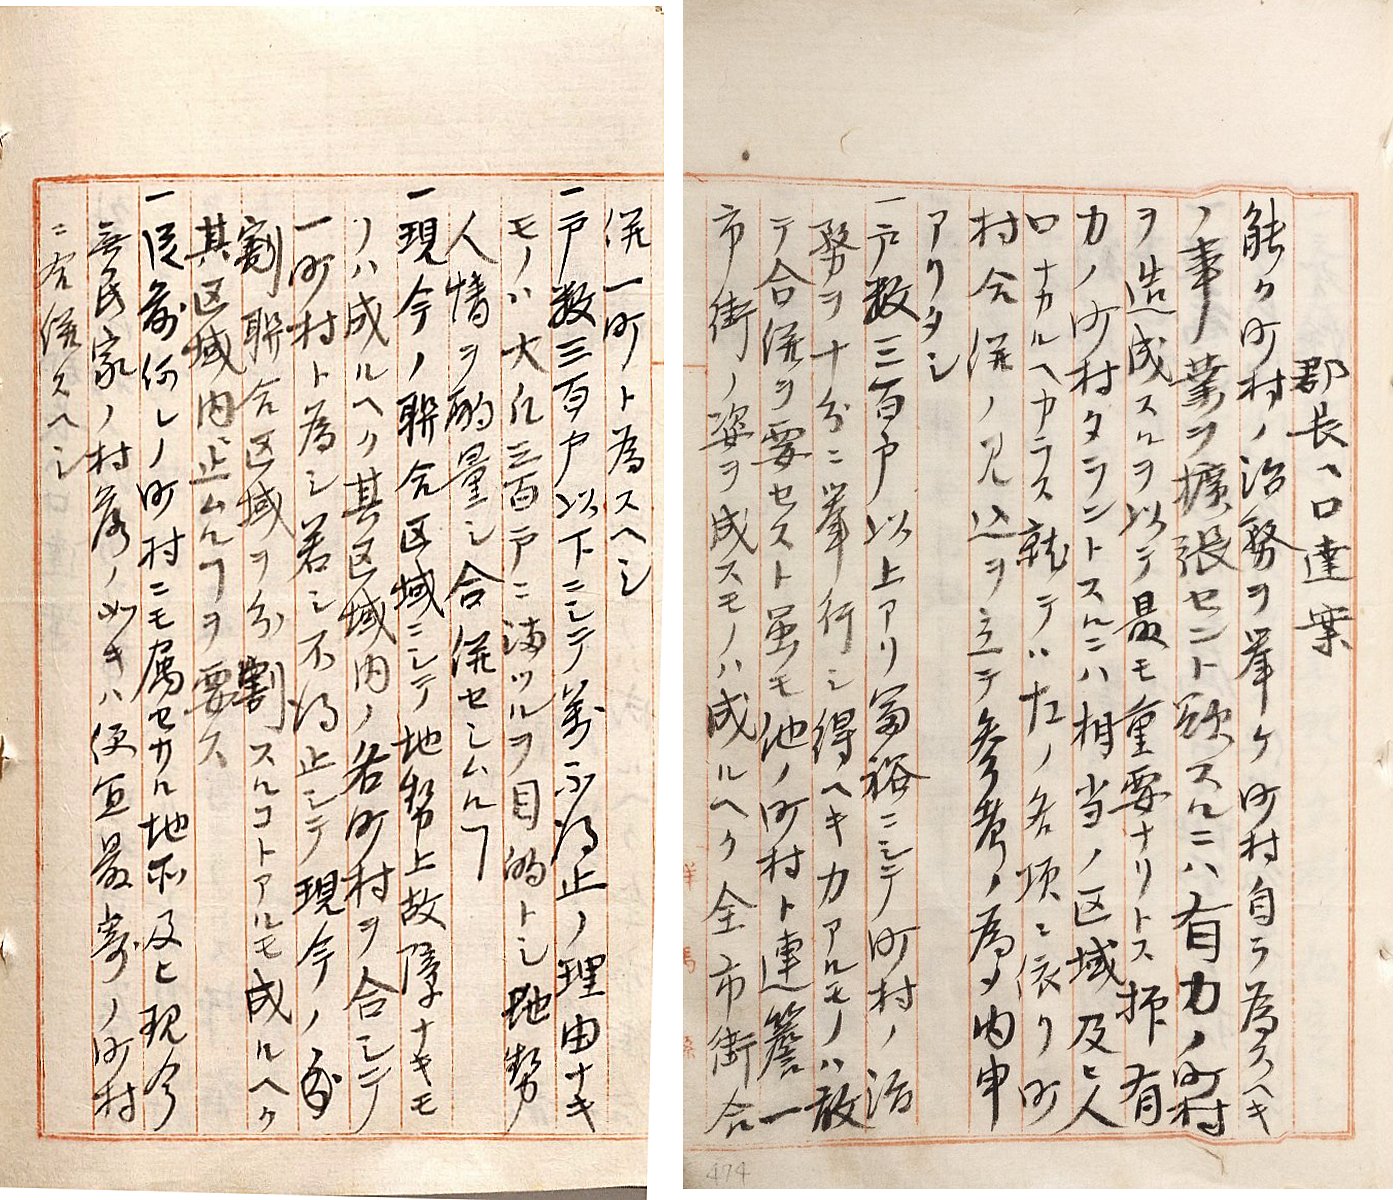 郡長ヘ口達案
能ク町村ノ治務ヲ挙ケ町村自ラ為スヘキ
ノ事業ヲ擴張セント欲スルニハ有力ノ町村
ヲ造成スルヲ以テ最モ重要ナリトス抑有
力ノ町村タラントスルニハ相当ノ区域及ヒ人
口ナカルヘカラス就テハ左ノ各項ニ依リ町
村合併ノ見込ヲ立テ参考ノ為メ内申
アリタシ
一戸数三百戸以上アリ富裕ニシテ町村ノ治
務ヲ十分ニ挙行シ得ヘキ力アルモノハ敢
テ合併ヲ要セスト虽モ他ノ町村ト連簷一
市街ノ姿ヲ成スモノハ成ルヘク全市街合
併一町ト為スヘシ
一戸数三百戸以下ニシテ萬不得止ノ理由ナキ
モノハ大凡三百戸ニ満ツルヲ目的トシ地勢
人情ヲ酌量シ合併セシムルヿ
一現今ノ聯合区域ニシテ地勢上故障ナキモ
ノハ成ルヘク其区域内ノ各町村ヲ合シテ
一町村ト為シ若シ不得止シテ現今ノ
割聯合区域ヲ分割スルコトアルモ成ルヘク
其区域内止ムルヿヲ要ス
一従前何レノ町村ニモ属セサル地所及ヒ現今
無民家ノ村落ノ如キハ便宜最寄ノ町村
ニ合併スヘシ
474